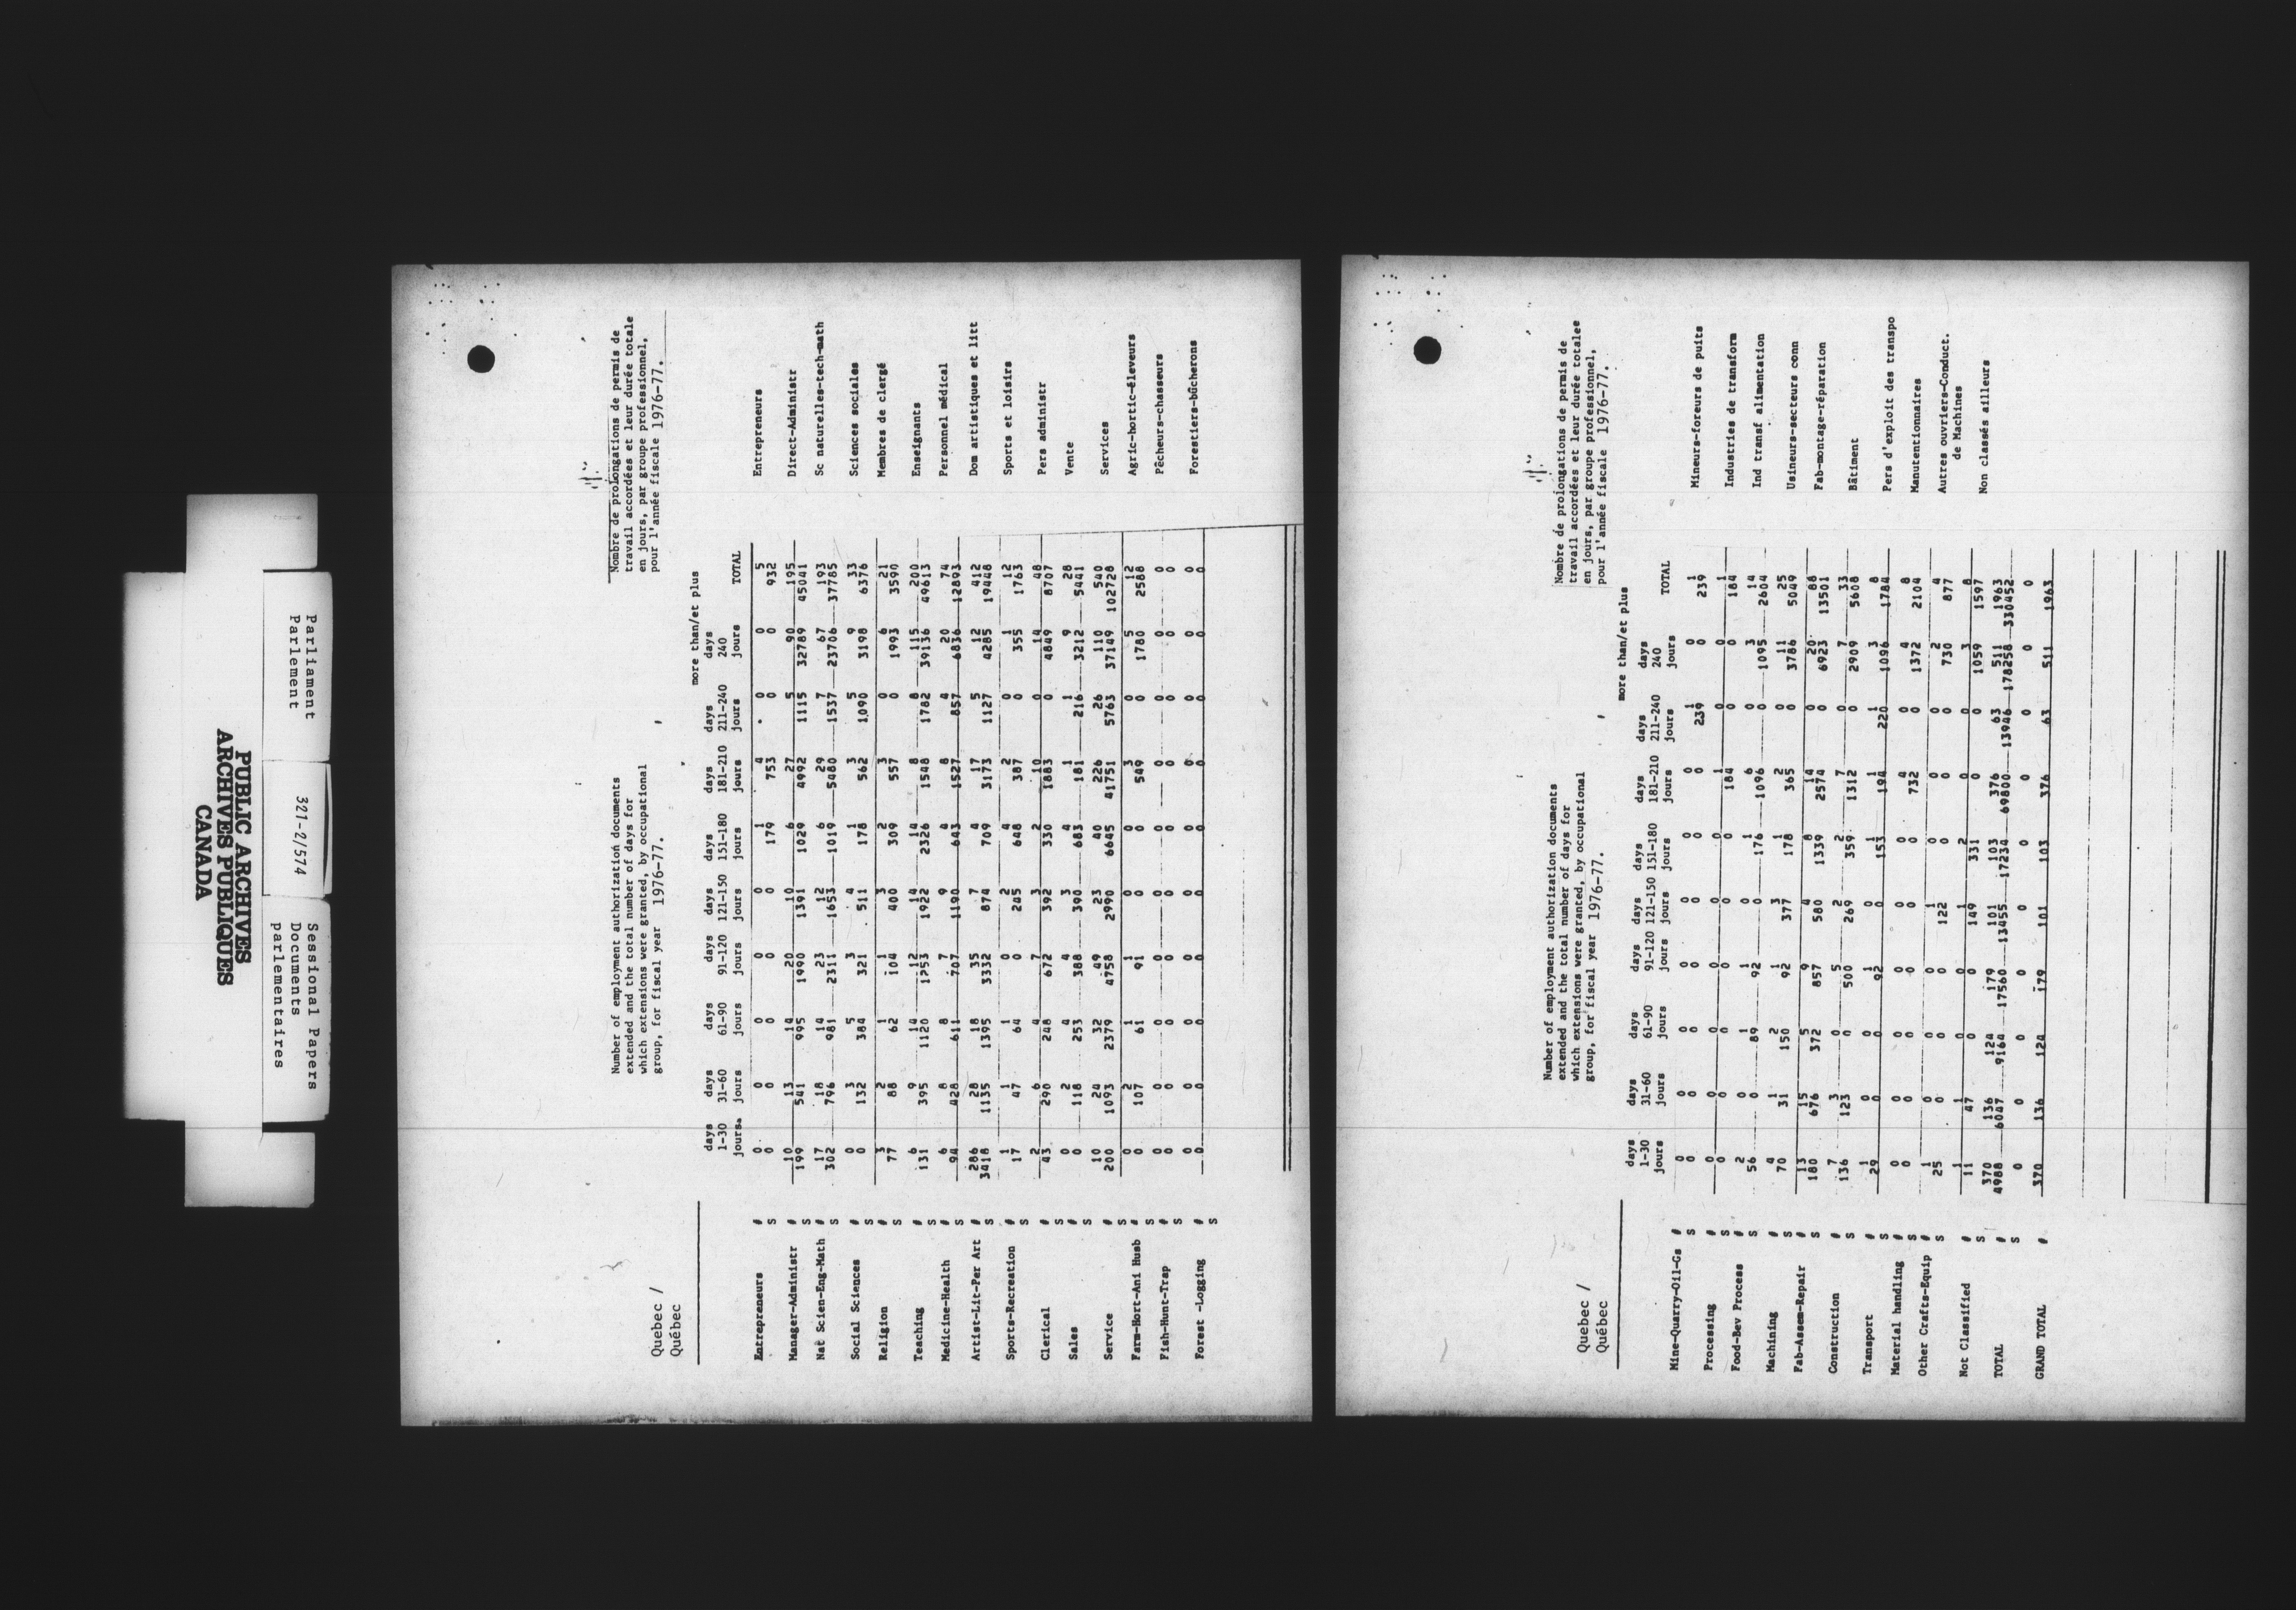 PUBLIC ARCHIVES
ARCHIVES PUBLIQUES
CANADA
Parliament
Parlement
321-2/574
Sessional Papers
Documents
parlementaires
Number of employment authorization documents
extended and the total number of days for
which extensions were granted, by occupational
group, for fiscal year 1976-77.
Nombre de prolongations de permis de
travail accordées et leur durée totale
en jours, par groupe professionnel,
pour l'année fiscale 1976-77.
Quebec /
Québec
more than/et plus
days days days days days days days days days
1-30 31-60 61-90 91-120 121-150 151-180 181-210 211-240 240 TOTAL
jours jours jours jours jours jours jours jours jours
Entrepreneurs # 0 0 0 0 0 1 4 0 0 5 Entrepreneurs
S 0 0 0 0 0 179 753 0 0 932
Manager-Administr # 10 13 14 20 10 6 27 5 90 195 Direct-Administr
S 199 541 995 1990 1391 1029 4992 1115 32789 45041
Nat Scien-Eng-Math # 17 18 14 23 12 6 29 7 67 193 Sc naturelles-tech-math
S 302 796 981 2311 1653 1019 5480 1537 23706 37785
Social Sciences # 0 3 5 3 4 1 3 5 9 33 Sciences sociales
S 0 132 384 321 511 178 562 1090 3198 6376
Religion # 3 2 1 1 3 2 3 0 6 21 Membres de clergé
S 77 88 62 104 400 309 557 0 1993 3590
Teaching # 6 9 14 12 14 14 8 8 115 200 Enseignants
S 131 395 1120 1253 1922 2326 1548 1782 39136 49613
Medicine-Health # 6 8 8 7 9 4 8 4 20 74 Personnel médical
S 94 428 611 707 1190 643 1527 857 6836 12893
Artist-Lit-Per Art # 286 28 18 35 7 4 17 5 12 412 Dom artistiques et litt
S 3418 1135 1395 3332 874 709 3173 1127 4285 19448
Sports-Recreation # 1 1 1 0 2 4 2 0 1 12 Sports et loisirs
S 17 47 64 0 245 648 387 0 355 1763
Clerical # 2 6 4 7 3 2 10 0 14 48 Pers administr
S 43 290 248 672 392 330 1883 0 4849 8707
Sales # 0 2 4 4 3 4 1 1 9 28 Vente
S 0 118 253 388 390 683 181 216 3212 5441
Service # 10 24 32 49 23 40 226 26 110 540 Services
S 200 1093 2379 4758 2990 6645 41751 5763 37149 102728
Farm-Hort-Ani Husb # 0 2 1 1 0 0 3 0 5 12 Agric-hortic-éleveurs
S 0 107 61 91 0 0 549 0 1780 2588
Fish-Hunt-Trap # 0 0 0 0 0 0 0 0 0 0 Pêcheurs-chasseurs
S 0 0 0 0 0 0 0 0 0 0
Forest -Logging # 0 0 0 0 0 0 0 0 0 0 Forestiers-bûcherons
S 0 0 0 0 0 0 0 0 0 0
Number of employment authorization documents
extended and the total number of days for
which extensions were granted, by occupational
group, for fiscal year 1976-77.
Nombre de prolongations de permis de
travail accordées et leur durée totalee
en jours, par groupe professionnel,
pour l'année fiscale 1976-77.
Quebec /
Québec
more than/et plus
days days days days days days days days days
1-30 31-60 61-90 91-120 121-150 151-180 181-210 211-240 240 TOTAL
jours jours jours jours jours jours jours jours jours
Mine-Quarry-Oil-Gs # 0 0 0 0 0 0 0 1 0 1 Mineurs-foreurs de puits
S 0 0 0 0 0 0 0 239 0 239
Processing # 0 0 0 0 0 0 1 0 0 1 Industries de transform
S 0 0 0 0 0 0 184 0 0 184
Food-Bev Process # 2 0 1 1 0 1 6 0 3 14 Ind transf alimentation
S 56 0 89 92 0 176 1096 0 1095 2604
Machining # 4 1 2 1 3 1 2 0 11 25 Usineurs-secteurs conn
S 70 31 150 92 377 178 365 0 3786 5049
Fab-Assem-Repair # 13 15 5 9 4 8 14 0 20 88 Fab-montage-réparation
S 180 676 372 857 580 1339 2574 0 6923 13501
Construction # 7 3 0 5 2 2 7 0 7 33 Bâtiment
S 136 123 0 500 269 359 1312 0 2909 5608
Transport # 1 0 0 1 0 1 1 1 3 8 Pers d'exploit des transpo
S 29 0 0 92 0 153 194 220 1096 1784
Material handling # 0 0 0 0 0 0 4 0 4 8 Manutentionnaires
S 0 0 0 0 0 0 732 0 1372 2104
Other Crafts-Equip # 1 0 0 0 1 0 0 0 2 4 Autres ouvriers-Conduct.
S 25 0 0 0 122 0 0 0 730 877 de Machines
Not Classified # 1 1 0 0 1 2 0 0 3 8 Non classés ailleurs
S 11 47 0 0 149 331 0 0 1059 1597
TOTAL # 370 136 124 179 101 103 376 63 511 1963
S 4988 6047 9164 17560 13455 17234 69800 13946 178258 330452
0 0 0 0 0 0 0 0 0 0
GRAND TOTAL # 370 136 124 179 101 103 376 63 511 1963